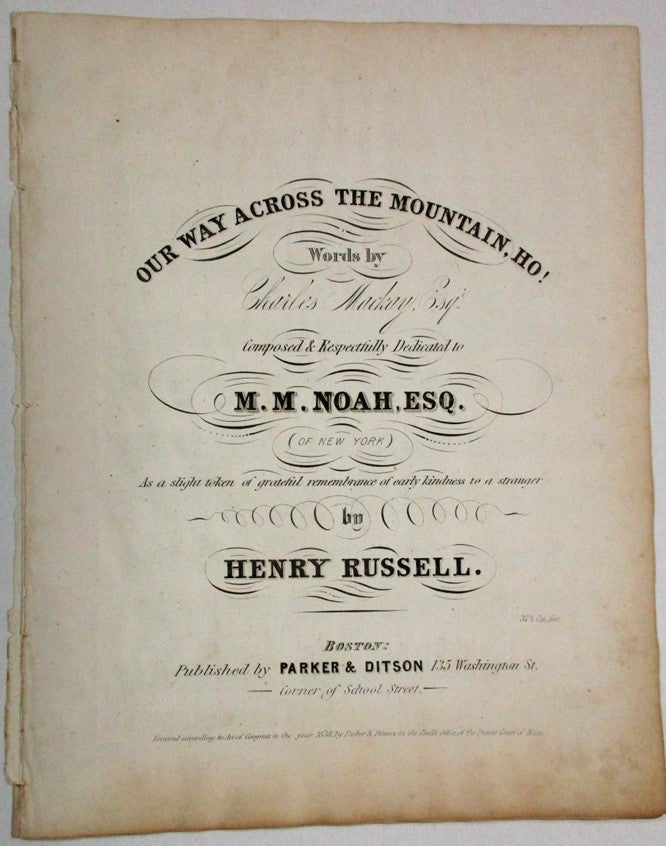 OUR WAY ACROSS THE MOUNTAIN, HO!
Words by
Charles Mackay, Esqr.
Composed & Respectfully Dedicated to
M. M. NOAH, ESQ.
(OF NEW YORK)
As a slight token of grateful remembrance of early kindness to a stranger
by
HENRY RUSSELL.
BOSTON:
Published by PARKER & DITSON 135 Washington St.
Corner of School Street.
Entered according to Act of Congress in the year 1838, by Parker & Ditson in the Clerk's Office of the District Court of Mass.